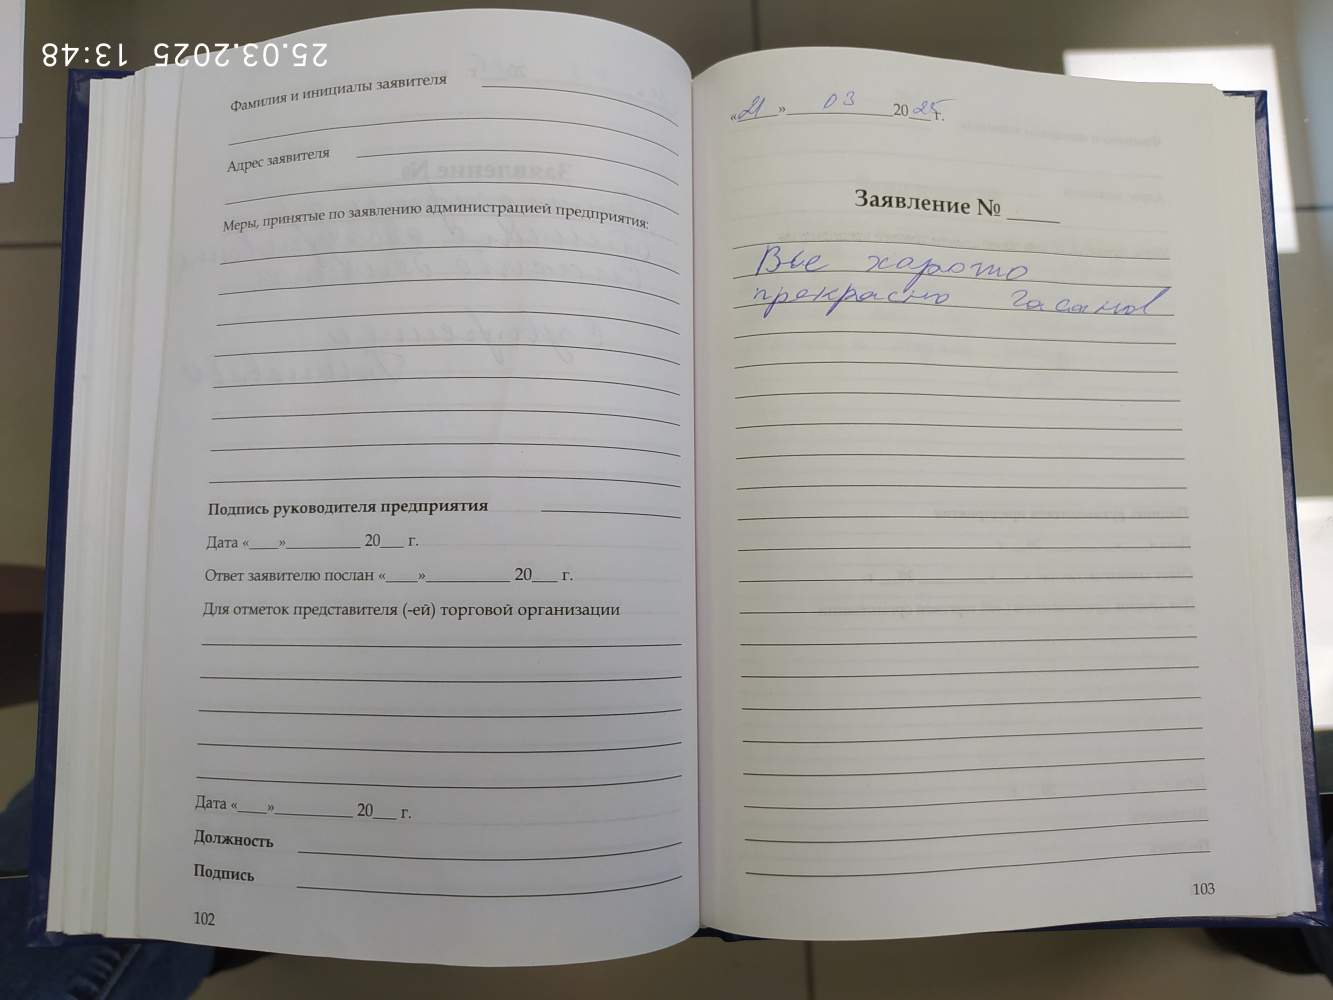 25.03.2025 13:48
Фамилия и инициалы заявителя
Адрес заявителя
Меры, принятые по заявлению администрацией предприятия:
Подпись руководителя предприятия
Дата «___»__________ 20___ г.
Ответ заявителю послан «____»___________ 20___ г.
Для отметок представителя (-ей) торговой организации
Дата «____»__________ 20___ г.
Должность
Подпись
102
«21» 03 2025 г.
Заявление № ____
Все харошо
прекрасно Гасанов
103